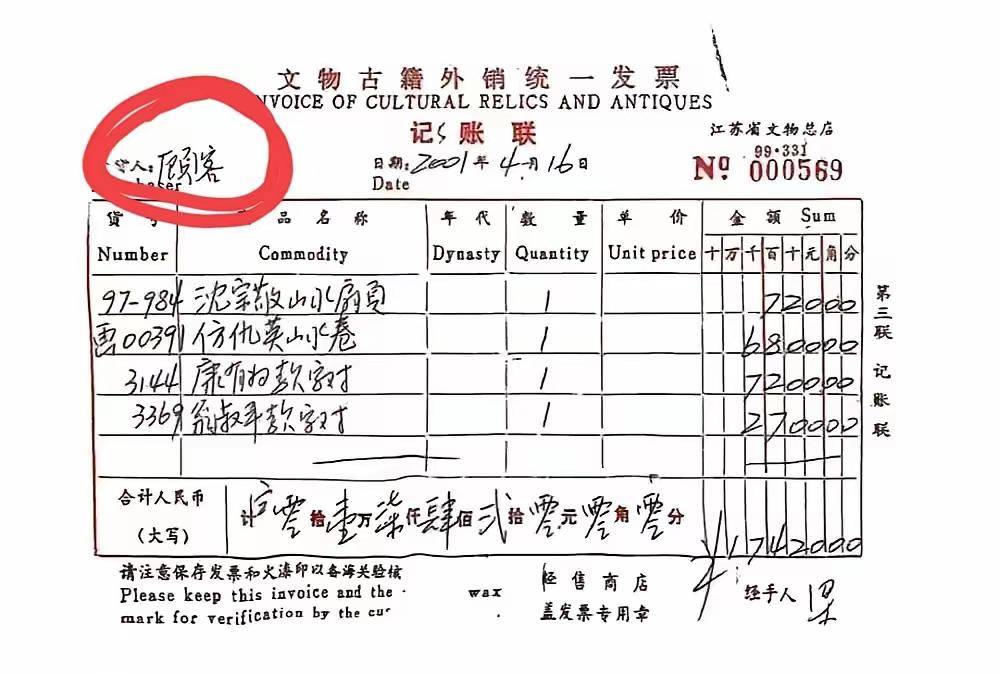 文物古籍外销统一发票
NVOICE OF CULTURAL RELICS AND ANTIQUES
记账联
江苏省文物总店
99·331
人:顾客
日期:2001年4月16日
Date
№ 000569
货号 品名称 年代 数量 单价 金额 Sum
Number Commodity Dynasty Quantity Unit price 十万千百十元角分
97-984 沈宗敬山水扇頁 1 72000
00391 仿仇英山水卷 1 680000
3144 康有为款字对 1 720000
3369 翁叔平款字对 1 270000
合计人民币
(大写)
零拾壹万柒仟肆佰贰拾零元零角零分 ¥1742000
第三联 记账联
请注意保存发票和火漆印以备海关验核
Please keep this invoice and the wax
mark for verification by the cu
经售商店
盖发票专用章
经手人 梁